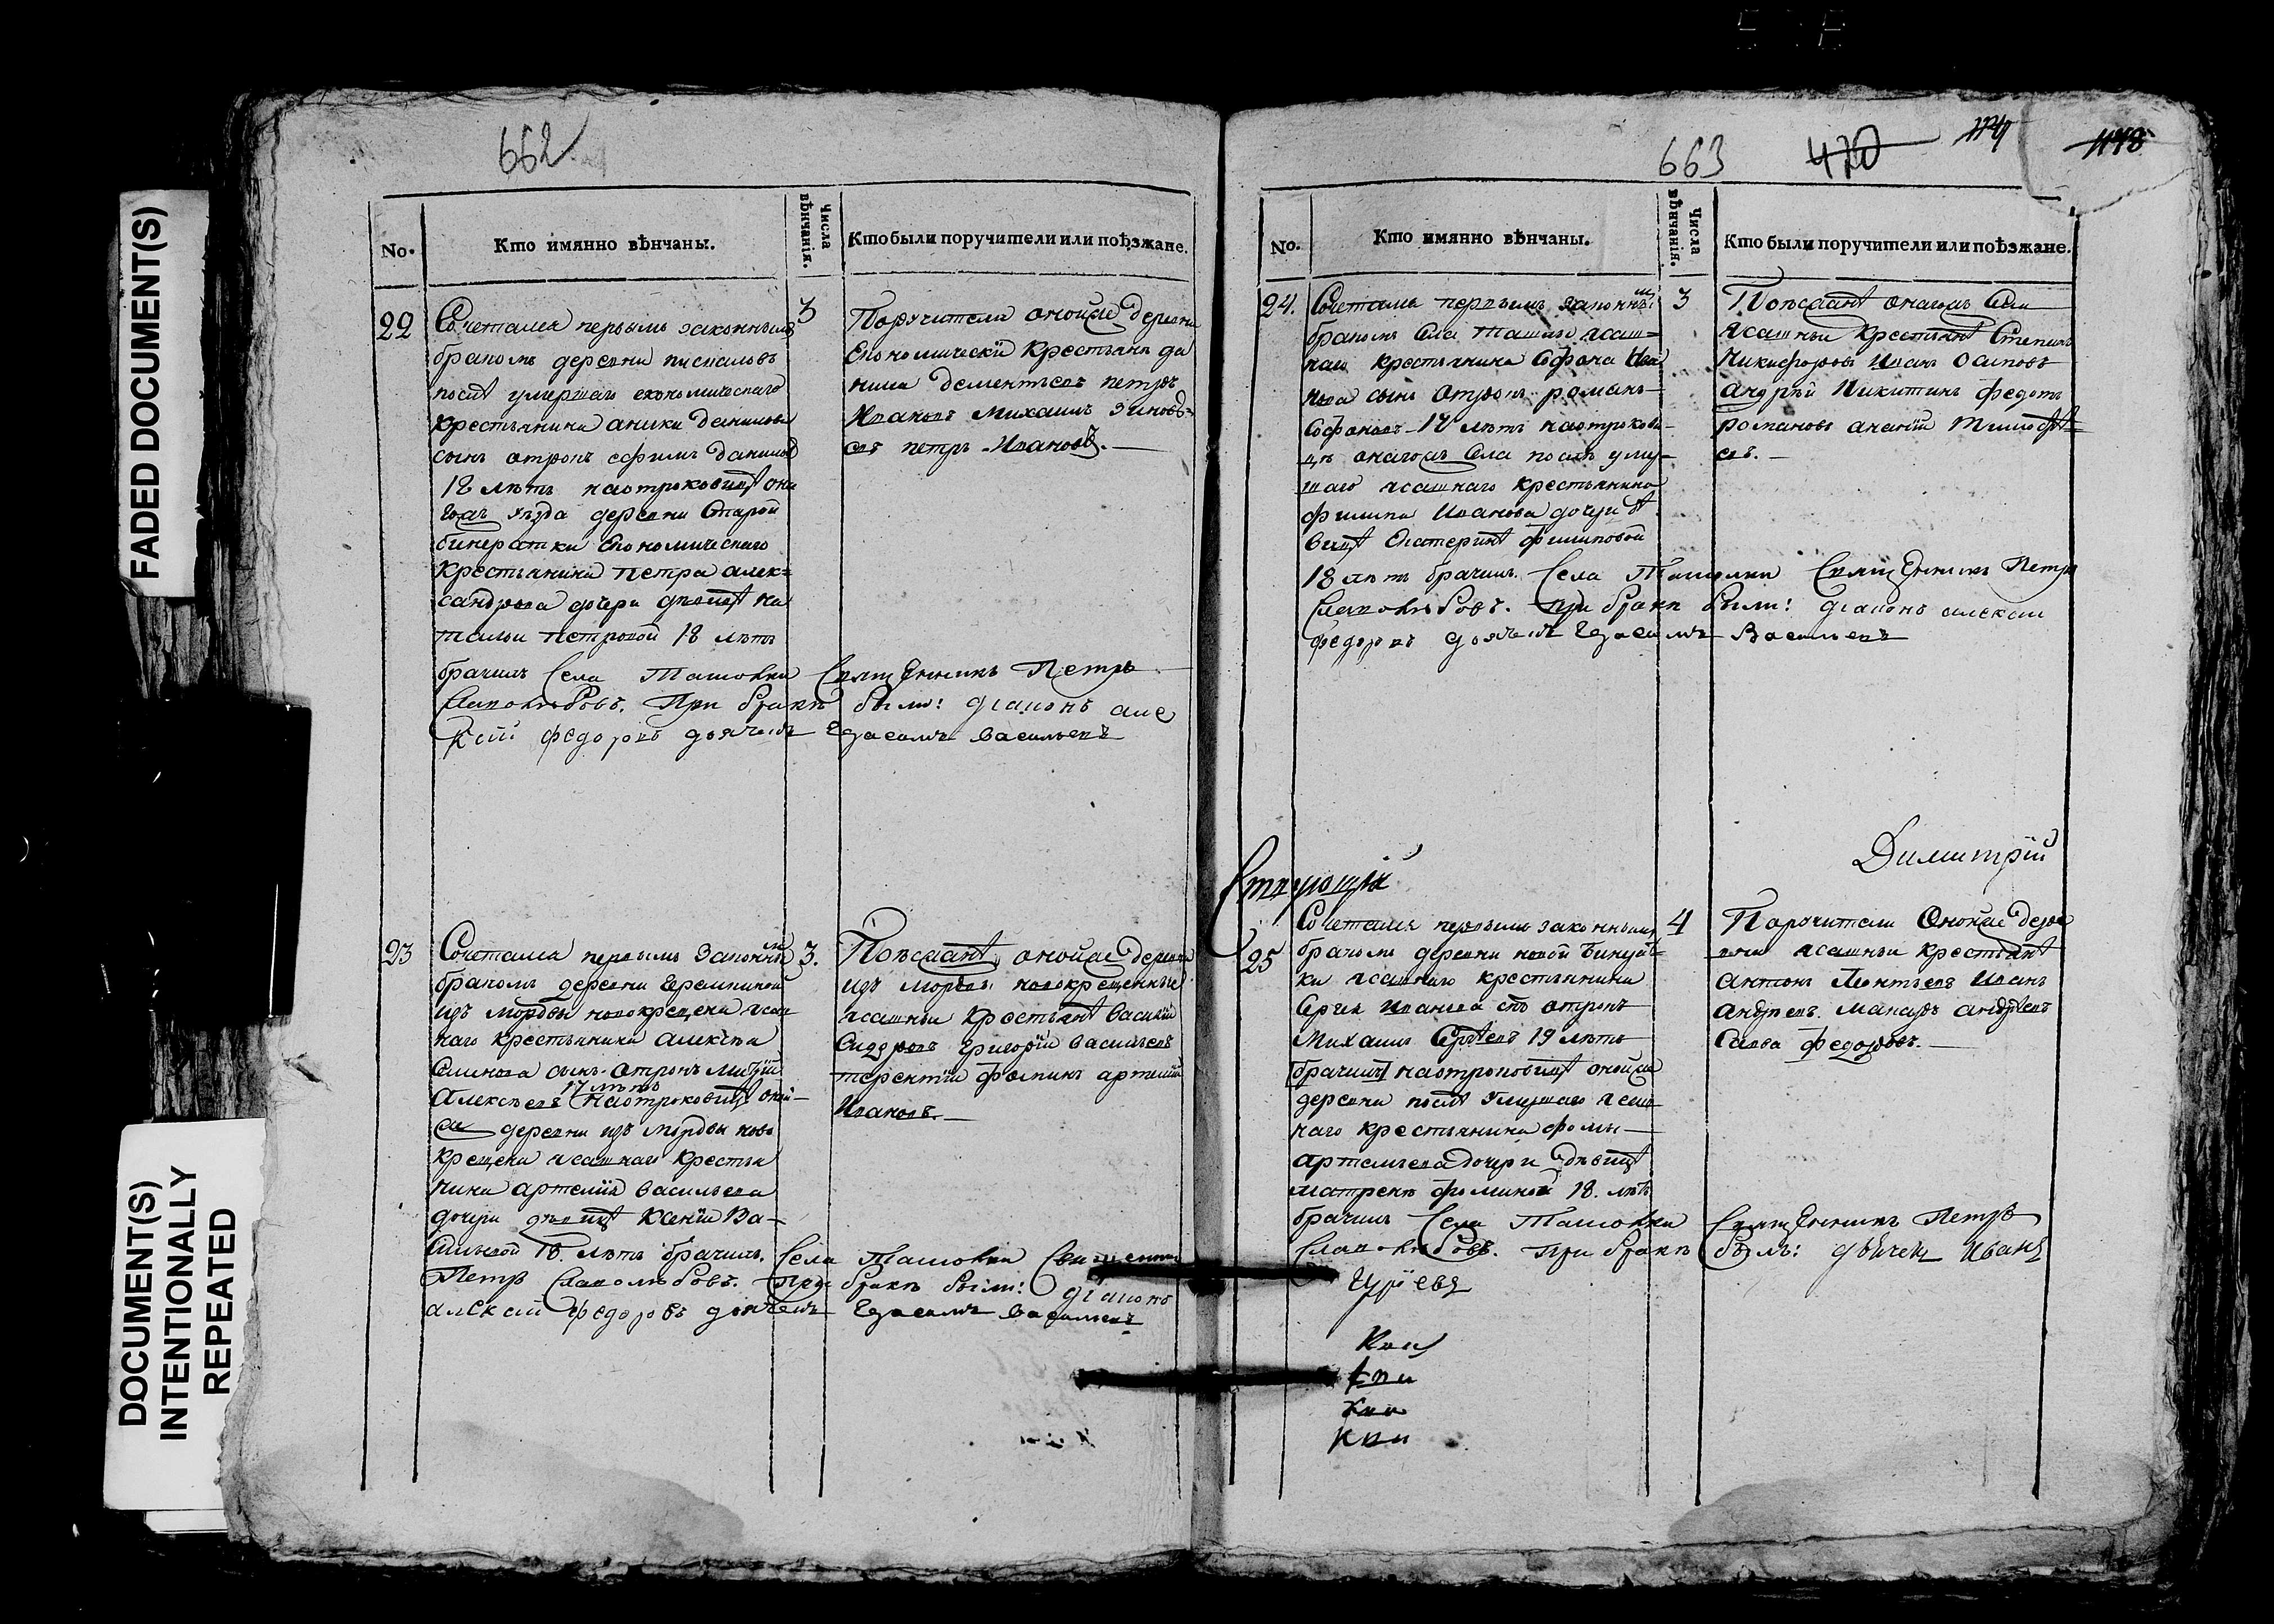 FADED DOCUMENT(S)
DOCUMENT(S)
INTENTIONALLY
REPEATED
662
No.
Кто имянно вѣнчаны.
Числа вѣнчанія.
Кто были поручители или поѣзжане.
22
Сочетался первымъ законнымъ
бракомъ деревни
послѣ умершаго економическаго
крестьянина аники данилова
сынъ отрокъ ефимъ данилов
18 лѣтъ на отроковицѣ оно
уѣзда деревни Старой
економическаго
крестьянина петра алек=
сандрова дочери дѣвицѣ на
тальи петровой 18 лѣтъ
брачилъ Села Ташолки Священникъ Петръ
Слаполюбовъ. При бракѣ были: діаконъ але
ксѣй федоровъ дьячекъ Герасимъ васильевъ
3
Поручители онойже деревни
Економическiи крестьяня да
нила дементьевъ петръ
Ивановъ михаилъ зиновь=
евъ петръ Ивановъ.
23
Сочетался первымъ законны
бракомъ деревни Еремкиной
изъ мордвы новокрещена ясаш
наго крестьянина алексѣя
сынъ отрокъ
17 лѣтъ
алексѣевъ на отроковицѣ оной
же деревни изъ мордвы ново
крещена ясашнаго крестья
нина артемiя васильева
дочери дѣвицѣ Ксенiи Ва-
сильевой 18 лѣтъ брачилъ. Села Ташолки Священникъ
Петръ Слаполюбовъ. При бракѣ были: діаконъ
алексѣй федоровъ дьячекъ Герасимъ васильевъ
3.
Поѣсжанѣ онойже деревни
изъ мордвы новокрещенные
ясашныи крестьянѣ василiй
Сидоровъ григорiй васильевъ
терентiй фоминъ артемiй
Ивановъ.
663
420
No.
Кто имянно вѣнчаны.
Числа вѣнчанія.
Кто были поручители или поѣзжане.
24.
Сочетался первымъ законны
бракомъ Села Ташлы ясаш=
наго крестьянина Софона Ива
нова сынъ отрокъ романъ
Софоновъ 17 лѣтъ на отрокови-
цѣ онагожъ Села послѣ умер-
шаго ясашнаго крестьянина
филипа Иванова дочери дѣ
вицѣ Екатеринѣ филиповой
18 лѣтъ брачилъ. Села Ташолки Священникъ Петръ
Слаполюбовъ. При бракѣ были: діаконъ алексѣй
федоровъ дьячекъ Герасимъ Васильевъ
3
Поѣсжанѣ онагожъ Села
ясашныи крестьянѣ Степанъ
Никифоровъ Иванъ Осиповъ
андрѣй Никитинъ федотъ
романовъ ананiй тимофѣ=
евъ.
Димитрiй
25
Сочетался первымъ законнымъ
бракомъ деревни новой
ки ясашнаго крестьянина
Сергея Иванова сынъ отрокъ
Михаилъ Сергѣевъ 19 лѣтъ
брачилъ на отроковицѣ онойже
деревни послѣ умершаго ясаш
наго крестьянина фомы
артемьева дочери дѣвицѣ
матренѣ фоминой 18. лѣтъ
брачилъ Села Ташолки Священникъ Петръ
Слаполюбовъ. При бракѣ былъ: дьячекъ Иванъ
Гурiевъ
4
Поручители Онойже дерев
ни ясашныи крестьянѣ
антонъ Леонтьевъ Иванъ
андреевъ. макаръ андреевъ
Савва федоровъ.